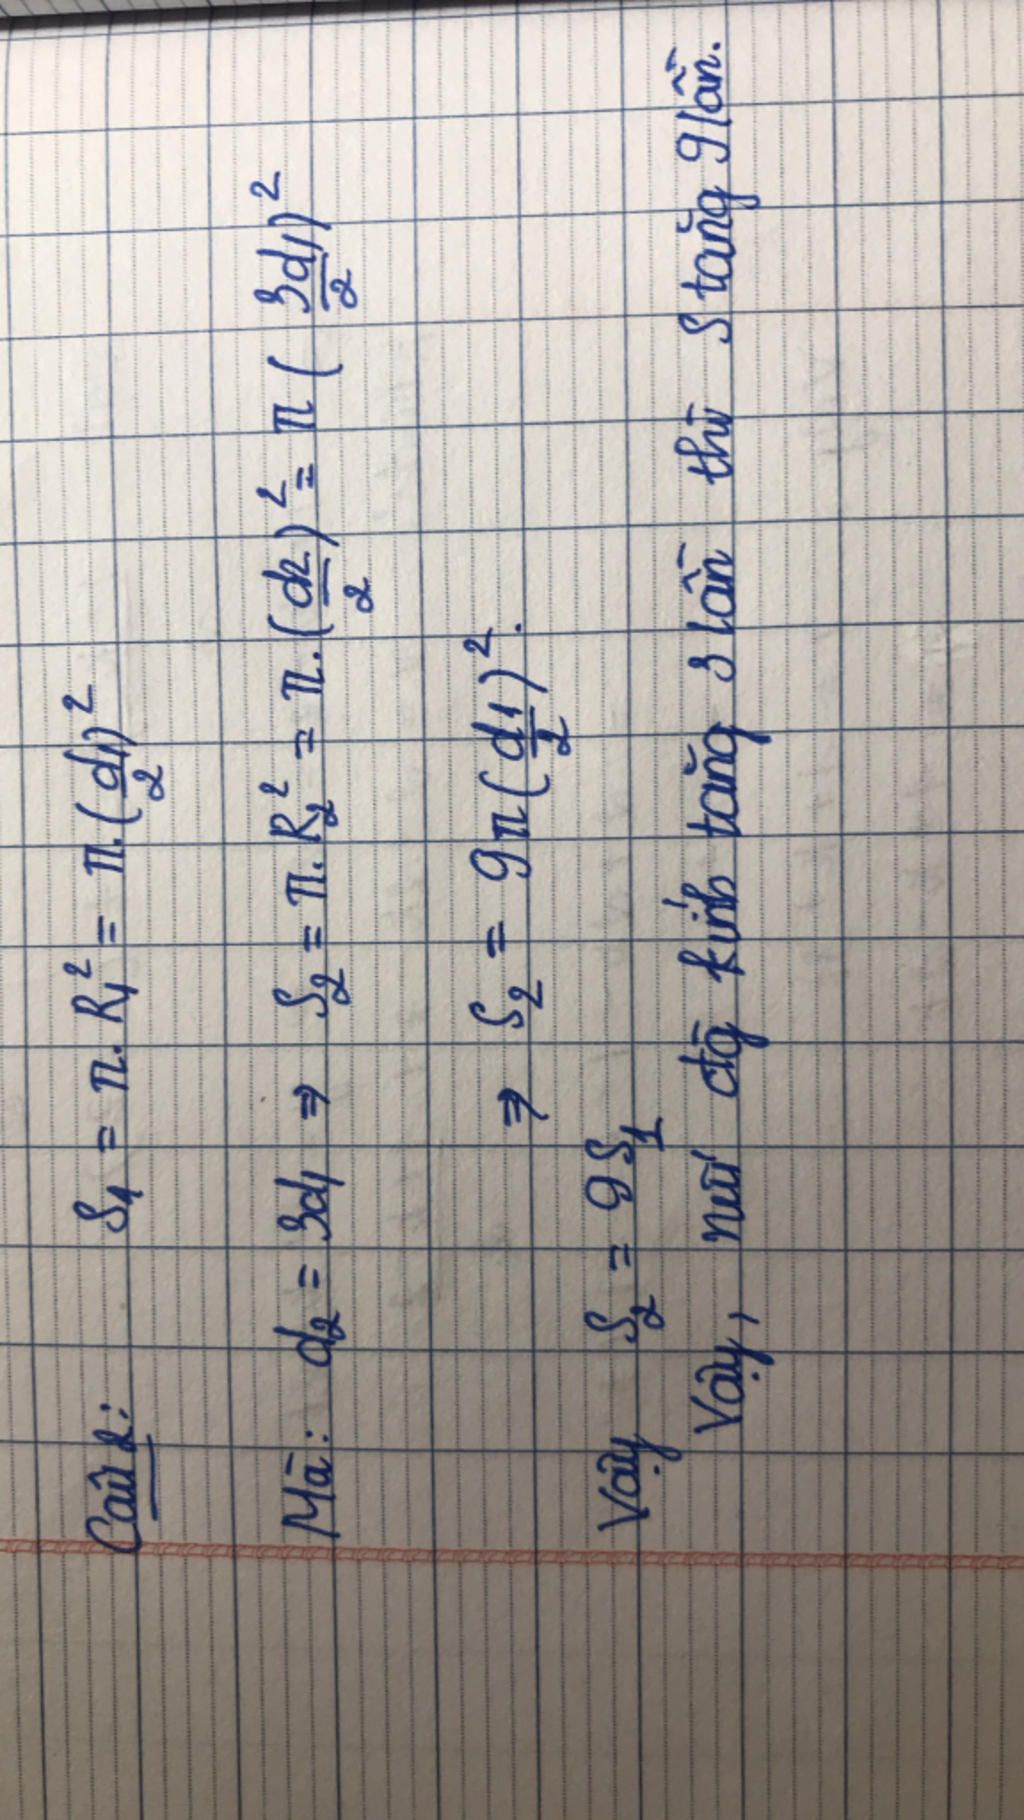 Câu 2: S₁ = π.R₁² = π.(d₁/2)²
Mà: d₂ = 3d₁ ⇒ S₂ = π.R₂² = π.(d₂/2)² = π(3d₁/2)²
⇒ S₂ = 9π(d₁/2)².
Vậy S₂ = 9S₁
Vậy, nếu đg kính tăng 3 lần thì S tăng 9 lần.